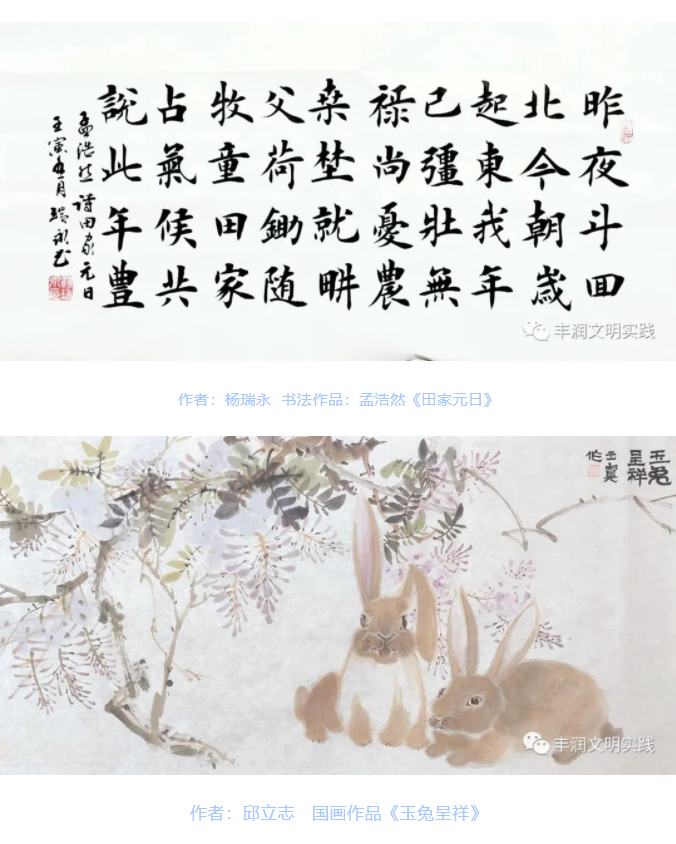 昨夜斗囬
北今朝嵗
起東我年
已彊壯無
禄尚憂農
桒埜就畊
父荷鋤随
牧童田家
占氣候共
説此年豊
孟浩然詩田家元日
壬寅月瑞永书
丰润文明实践
作者：杨瑞永 书法作品：孟浩然《田家元日》
玉兔
呈祥
壬寅
作
丰润文明实践
作者：邱立志 国画作品《玉兔呈祥》